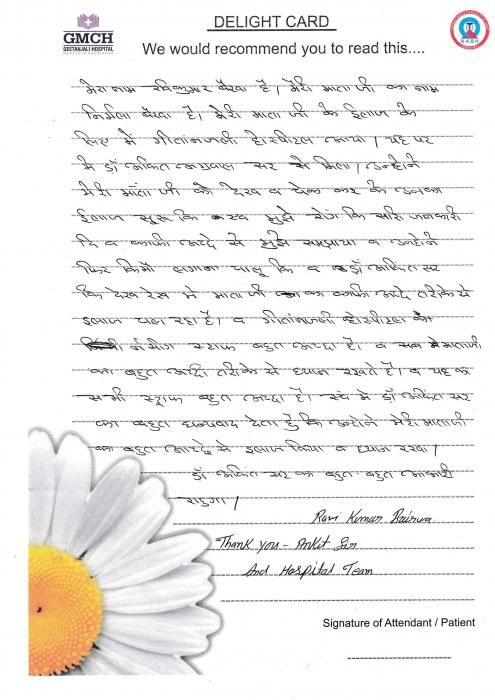 GMCH
GEETANJALI HOSPITAL
HEALTH IN GOOD HANDS
DELIGHT CARD
NABH
We would recommend you to read this....
मेरा नाम रविकुमार बैरवा है। मेरी माता जी का नाम
निर्मला बैरवा है। मेरी माता जी के ईलाज के
लिए में गीतांजली हॉस्पीटल आया। यह पर
मे डॉ अंकित अग्रवाल सर से मिला। उन्होने
मेरी माँता जी को देख व चेक कर के उनका
ईलाज सुरू कि व मुझे रोग कि सारी जनकारी
दि व काफी अच्छे से मुझे समझाया व उन्होने
फिर किमों लगाना चालू कि व डॉ अंकित सर
कि देख रेख मे माता जी का काफी अच्छे तरीके से
इलाज चल रहा है। व गीतांनजली हॉस्पीटल
र्नसींग स्टाफ बहुत अच्छा है। व सब माताजी
का बहुत अच्छी तरीके से ध्यान रखते है। व यह का
सभी स्ट्राफ बहुत अच्छा है। मे डॉ अंकित सर
का बहुत धन्यवाद देता हुँ कि उन्होने मेरी माताजी
का बहुत अच्छे से इलाज किया व ध्यान रखा।
डॉ अंकित सर का बहुत-बहुत आभारी
राहुगा।
Ravi Kumar Bairwa
Thank you - Ankit Sir
And Hospital Team
Signature of Attendant / Patient